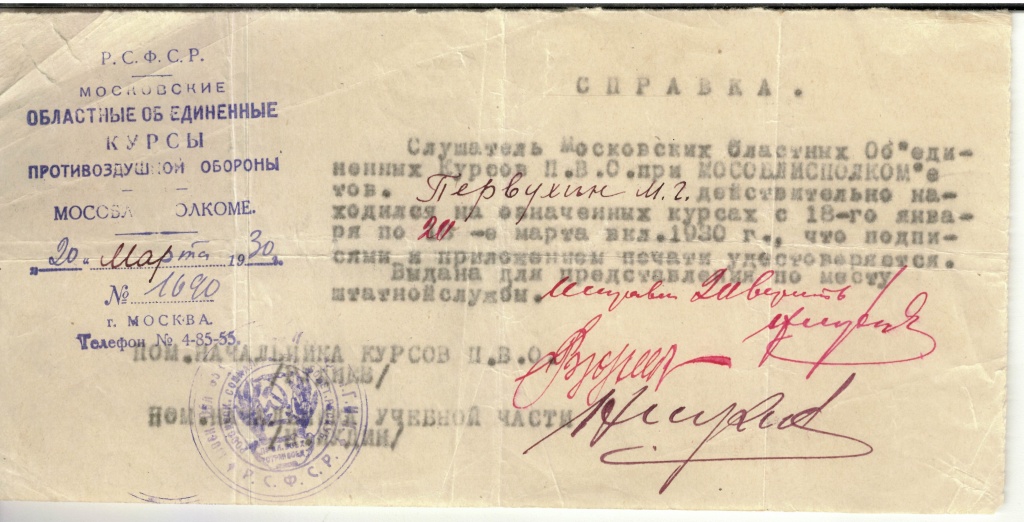 Р.С.Ф.С.Р.
МОСКОВСКИЕ
ОБЛАСТНЫЕ ОБ ЕДИНЕННЫЕ
КУРСЫ
ПРОТИВОЗДУШНОЙ ОБОРОНЫ
МОСОБЛ ОЛКОМЕ.
„20„ Марта 1930г.
№ 1690
г. МОСКВА.
Телефон № 4-85-55.
СПРАВКА.
Слушатель Московских Областных Об"еди-
ненных Курсов П.В.О.при МОСОБЛИСПОЛКОМ"е
тов. Первухин М.Г. действительно на-
ходился на означенных курсах с 18-го янва-
ря по 20 -е марта вкл.1930 г., что подпи-
сями и приложением печати удостоверяется.
Выдана для представления по месту
штатнойслужбы.
ПОМ.НАЧАЛЬНИКА КУРСОВ П.В.О.
ПОМ. УЧЕБНОЙ ЧАСТИ
Р.С.Ф.С.Р.